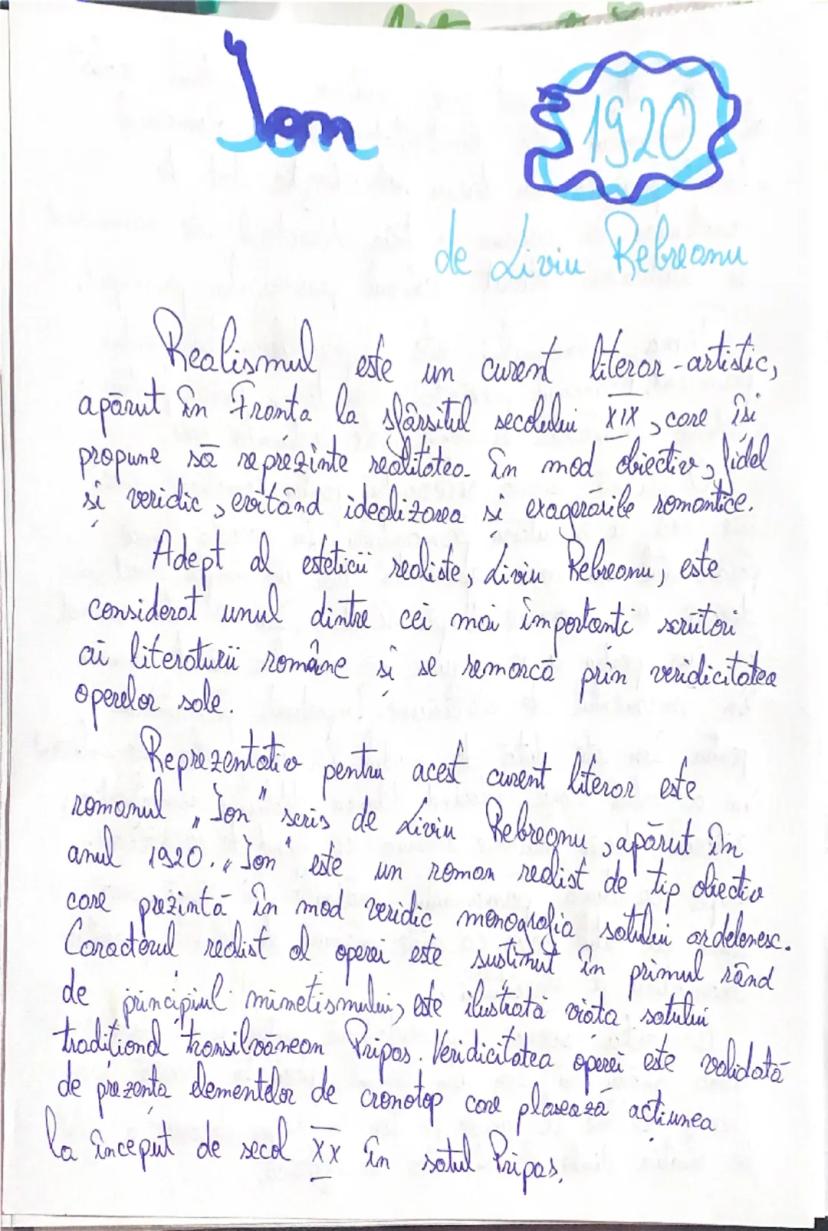 Ion
1920
de Liviu Rebreanu
Realismul este un curent literar-artistic,
apărut în Franța la sfârsitul secolului XIX, care îsi
propune să reprezinte realitatea în mod obiectiv, fidel
și veridic, evitând idealizarea si exagerările romantice.
Adept al esteticii realiste, Liviu Rebreanu, este
considerat unul dintre cei mai importanti scriitori
ai literaturii române și se remarcă prin veridicitatea
operelor sale.
Reprezentativ pentru acest curent literar este
romanul „Ion" scris de Liviu Rebreanu, apărut în
anul 1920. „Ion" este un roman realist de tip obiectiv
care prezintă în mod veridic monografia satului ardelenesc.
Caracterul realist al operei este sustinut în primul rând
de principiul mimetismului, este ilustrată viata satului
traditional transilvănean Pripas. Veridicitatea operei este validată
de prezența elementelor de cronotop care plasează acțiunea
la început de secol XX în satul Pripas.